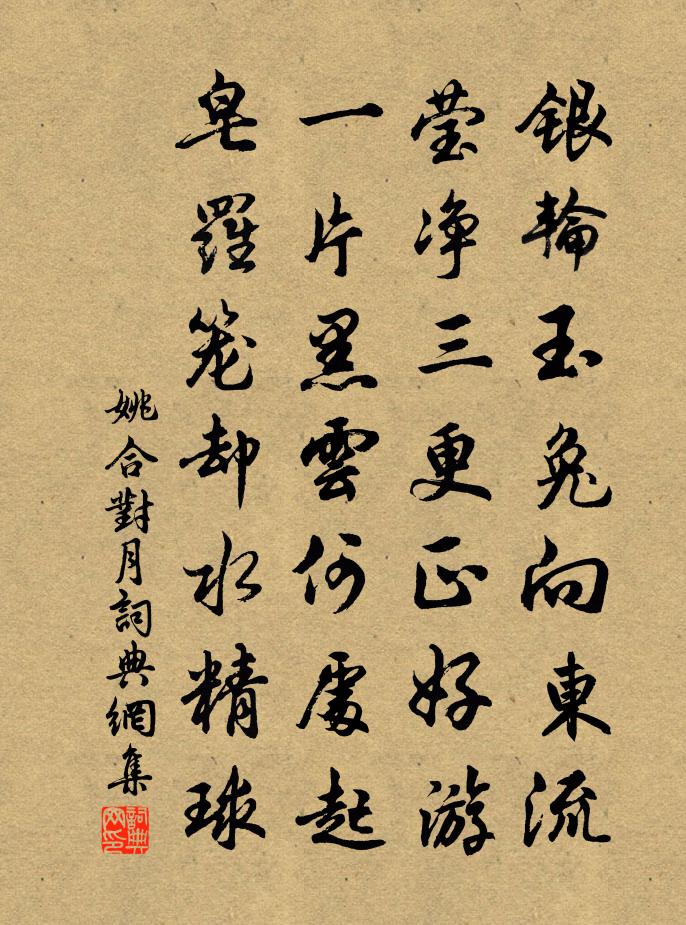 银輪玉兔向東流
莹净三更正好游
一片黑雲何處起
皂羅笼却水精球
姚合對月詞典網集
詞典網印